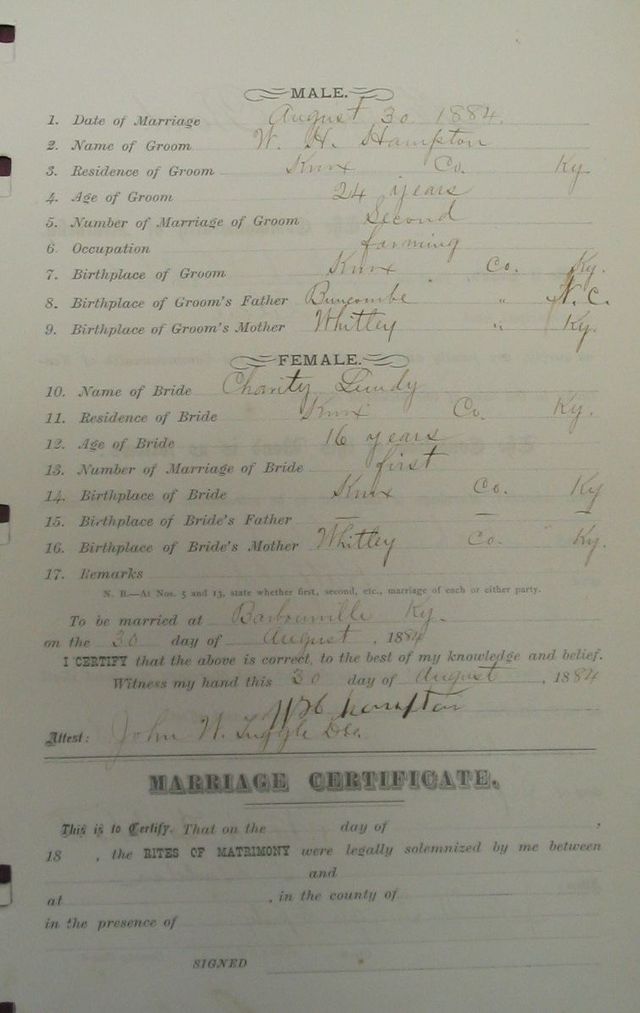 MALE.
1. Date of Marriage August 30 1884.
2. Name of Groom W. H. Hampton
3. Residence of Groom Knox Co. Ky
4. Age of Groom 24 years
5. Number of Marriage of Groom Second
6. Occupation farming
7. Birthplace of Groom Knox Co. Ky.
8. Birthplace of Groom's Father Buncombe " N.C.
9. Birthplace of Groom's Mother Whitley " Ky.
FEMALE.
10. Name of Bride Charity Lundy
11. Residence of Bride Knox Co. Ky.
12. Age of Bride 16 years
13. Number of Marriage of Bride first
14. Birthplace of Bride Knox Co. Ky
15. Birthplace of Bride's Father — — —
16. Birthplace of Bride's Mother Whitley Co. Ky.
17. Remarks
N. B.—At Nos. 5 and 13, state whether first, second, etc., marriage of each or either party.
To be married at Barbourville Ky.
on the 30 day of August, 1884
I CERTIFY that the above is correct, to the best of my knowledge and belief.
Witness my hand this 30 day of August, 1884
W H Hampton
Attest: John W. Tuggle
MARRIAGE CERTIFICATE.
This is to Certify, That on the day of ,
18 , the RITES OF MATRIMONY were legally solemnized by me between
and
at , in the county of
in the presence of
SIGNED